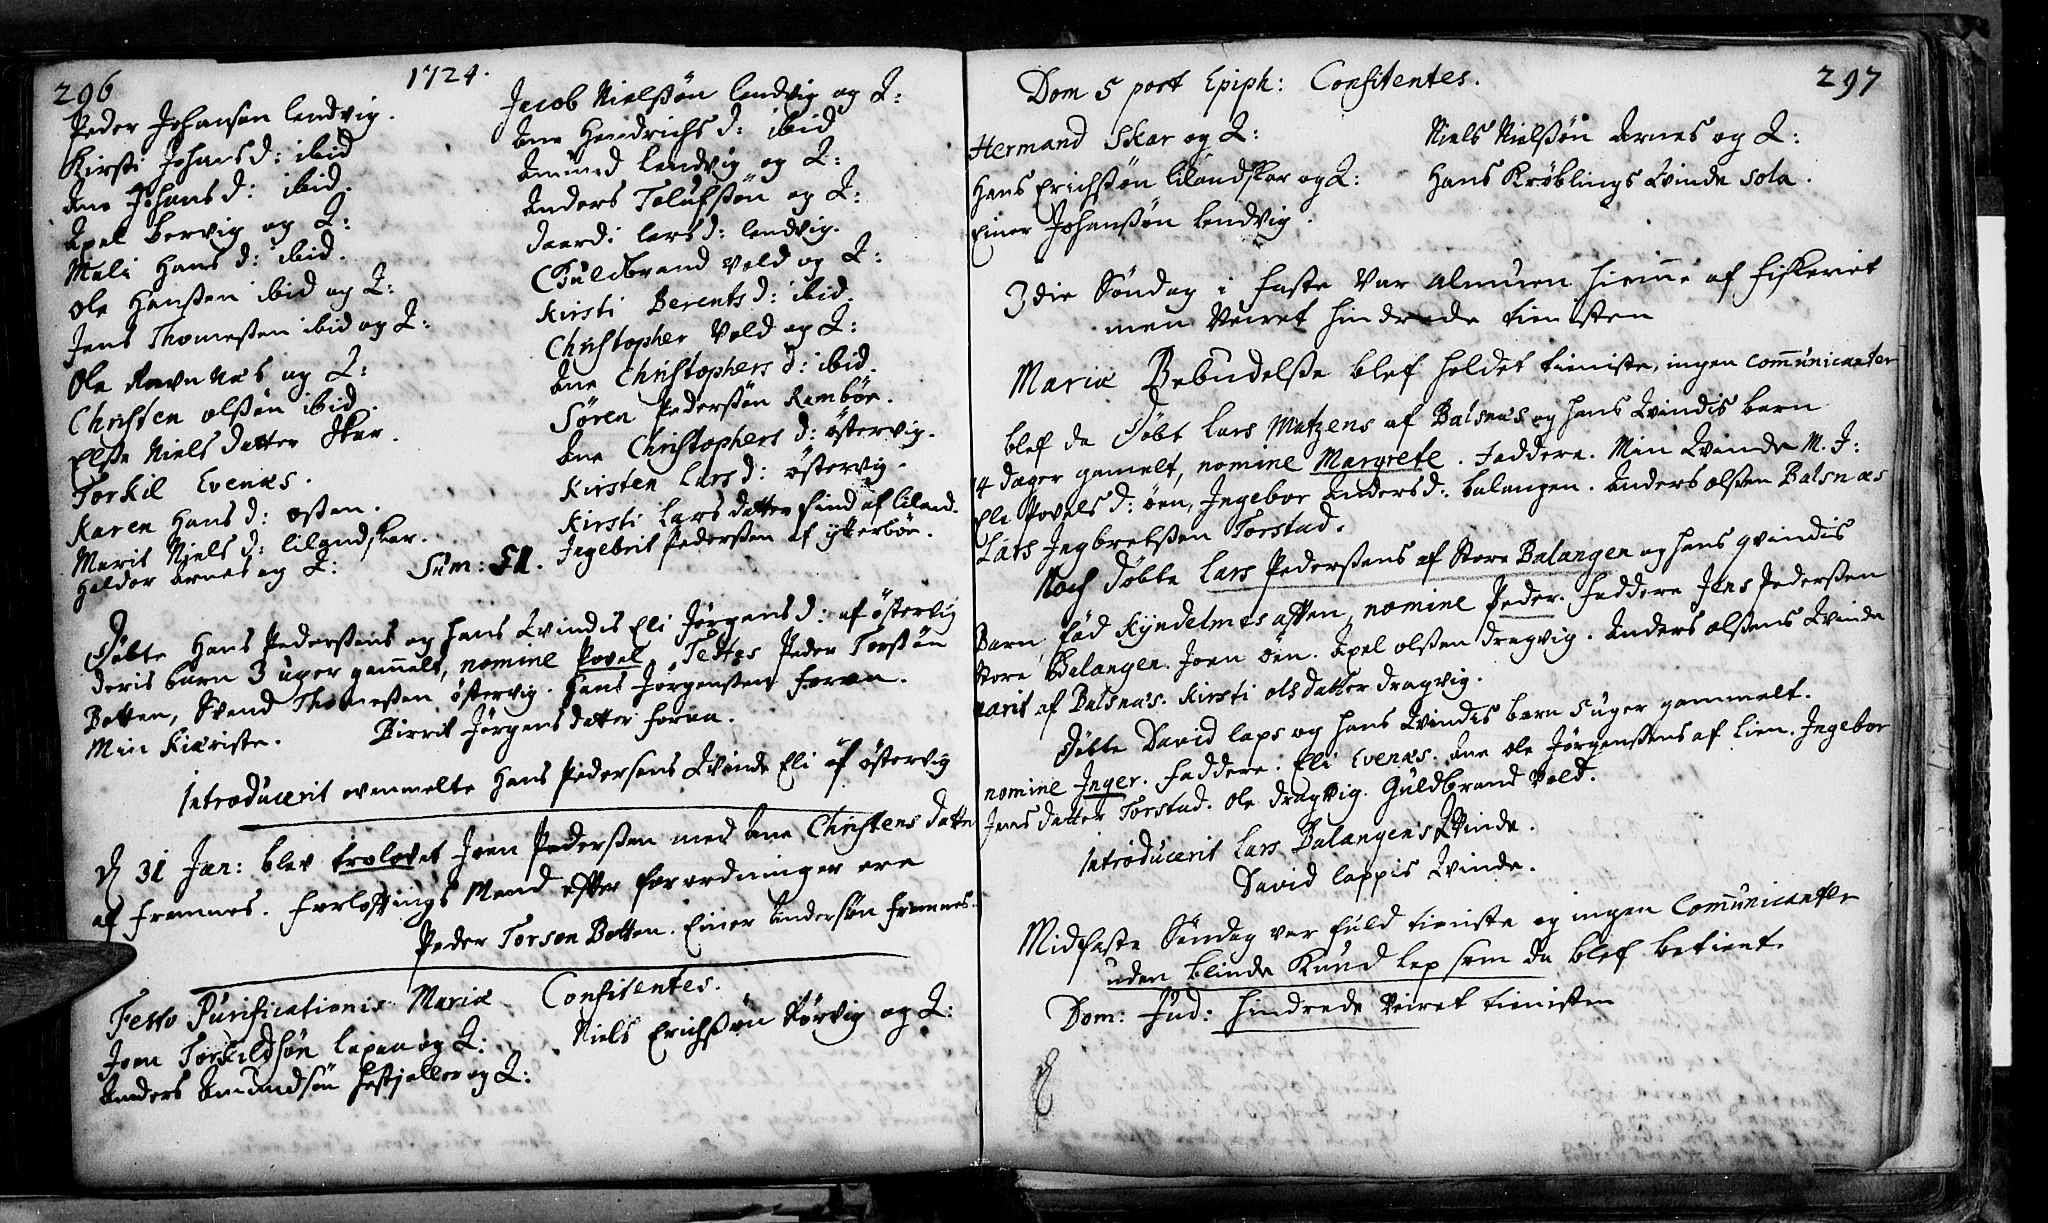 296
1724.
Peder Johansøn Lendvig.
Kirsti Johansd: ibid
Ane Johansd: ibid.
Axel Bervig og Q:
Mali Hansd: ibid.
Ole Hanssen ibid og Q:
Jens Thomessen ibid og Q:
Ole Ravnnæs og Q:
Christen olssøn ibid.
Elsse Niels datter Skar.
Torkil Evenæs.
Karen Hansd: ossen.
Marit Nielsd: lilandskar.
Haldor Arnes og Q:
Jacob Nielssøn Lendvig og Q:
Ane Hendrichsd: ibid
Amund Lendvig og Q:
Anders Tolufssøn og Q:
Daardi Larsd: Lendvig.
Guldbrand Vold og Q:
Kirsti Berentsd: ibid.
Christopher Vold og Q:
Ane Christophersd: ibid.
Søren Pederssøn Rambøe.
Ane Christophersd: østervig.
Kirsten Larsd: østervig.
Kirsti Lars datter find af Liland.
Ingebrit Pederssen af ytterbøe.
Sum: 51.
Døbte Hans Pederssens og hans Qvindis Eli Jørgensd: af østervig
deris barn 3 uger gammelt, nomine Povel. Testes Peder Torssøn
Botten, Svend Thomessen østervig. Hans Jørgenssen Foraa.
Min Kiæriste. Birrit Jørgensdatter Foraa.
Introducerit ovenmelte Hans Pedersens Qvinde Eli af østervig
D 31 Jan: blev trolovet Joen Pederssen med Ane Christens datter
af Fremnes. Forlofnings Mænd efter forordninger ere
Peder Torson Botten. Einer Andersøn Fremnes.
Festo Purificationis Mariæ Confitentes.
Joen Torkildsøn Lapen og Q:
Niels Erichssøn Rørvig og Q:
Anders Amundsøn Hestjeller og Q:
297
Dom 5 post Epiph: Confitentes.
Hermand Skar og Q:
Niels Nielssøn Arnes og Q:
Hans Erichssøn Lilandskar og Q:
Hans Krøblings Qvinde sola.
Einer Johanssøn Lendvig.
3die Søndag i Faste var Almuen hiemme af fiskeriet
men Veiret hindrede tienisten
Mariæ Bebudelsse blef holdet tieniste, ingen communicanter
blef da Døbt Lars Matzens af Balsnæs og hans Qvindis barn
14 dager gamelt, nomine Margrete. Faddere. Min Qvinde M. J:
Eli Povelsd: øen, Ingebor Andersd: balangen. Anders olssen Balsnæs
Lars Ingbretssen Torstad.
Noch Døbte Lars Pederssens af Store Balangen og hans qvindis
Barn, fød Kyndelmes aften, nomine Peder. Faddere Jens Pederssen
Store Balangen. Joen øen. Axel olssen dragvig. Anders olssens Qvinde
marit af Balsnæs. Kirsti olsdatter dragvig.
Døbte David laps og hans Qvindis barn 5 uger gammelt.
nomine Inger. Faddere. Eli Evenæs. Ane ole Jørgenssens af Lien. Ingebor
Jens datter Torstad. Ole dragvig. Guldbrand Vold.
Introducerit Lars Balangens Qvinde.
David lappis Qvinde.
Midfaste Søndag var fuld tieniste og ingen Communicanter
uden blinde Knud Lap som da blef betient.
Dom: Jud: hindrede Veiret tienisten